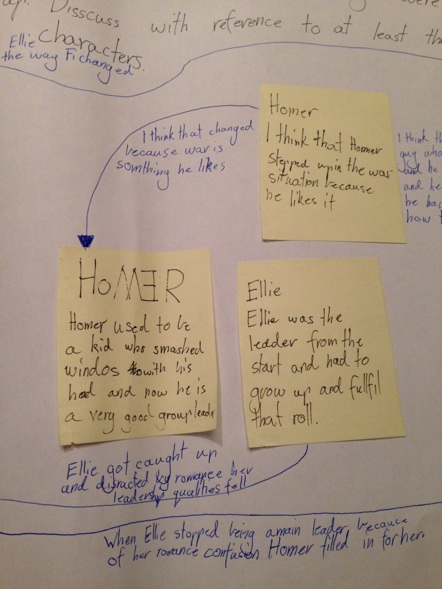 Disscuss with reference to at least
characters.
Ellie
the way Fi changed.
Homer
I think that Homer
stepped up in the war
situation because
he likes it
I think that changed
because war is
somthing he likes
I think
guy
and he
and he
he
how
HOMER
Homer used to be
a kid who smashed
windos with his
hed and now he is
a very good group
Ellie
Ellie was the
leader from the
start and had to
grow up and fullfil
that roll.
Ellie got caught up
and distracted by romance her
leadership qualities fell
When Ellie stopped being a main leader because
of her romance confusion Homer filled in for her.